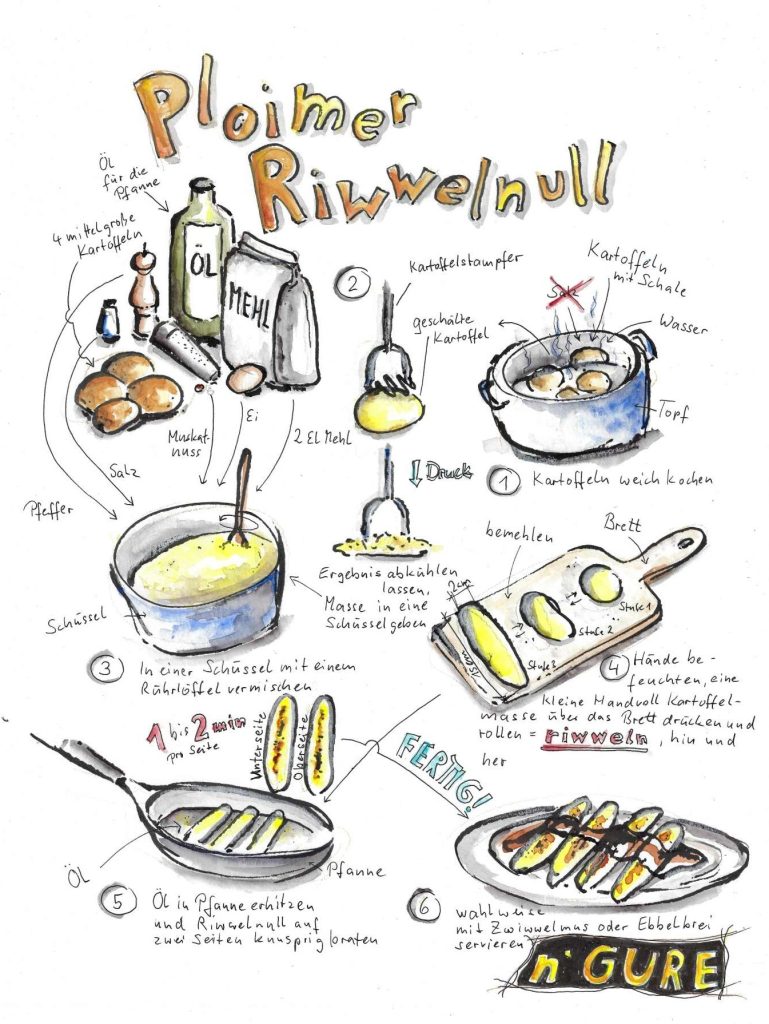 Ploimer
Riwwelnull
Öl
für die
Pfanne
4 mittelgroße
Kartoffeln
ÖL
MEHL
Muskat-
nuss
Ei
2 El Mehl
Salz
Pfeffer
Kartoffeln
mit Schale
Salz
Wasser
Topf
1 Kartoffeln weich kochen
2
Kartoffelstampfer
geschälte
Kartoffel
Druck
Ergebnis abkühlen
lassen,
Masse in eine
Schüssel geben
Schüssel
3 In einer Schüssel mit einem
Rührlöffel vermischen
bemehlen
Brett
2cm
15cm
Stufe 1
Stufe 2
Stufe 3
4 Hände be-
feuchten, eine
kleine Handvoll Kartoffel-
masse über das Brett drücken und
rollen = riwweln, hin und
her
1 bis 2 min
pro Seite
Unterseite
Oberseite
FERTIG!
Öl
Pfanne
5 Öl in Pfanne erhitzen
und Riwwelnull auf
zwei Seiten knusprig braten
6 wahlweise
mit Zwiwwelmus oder Ebbelbrei
servieren
n' GURE